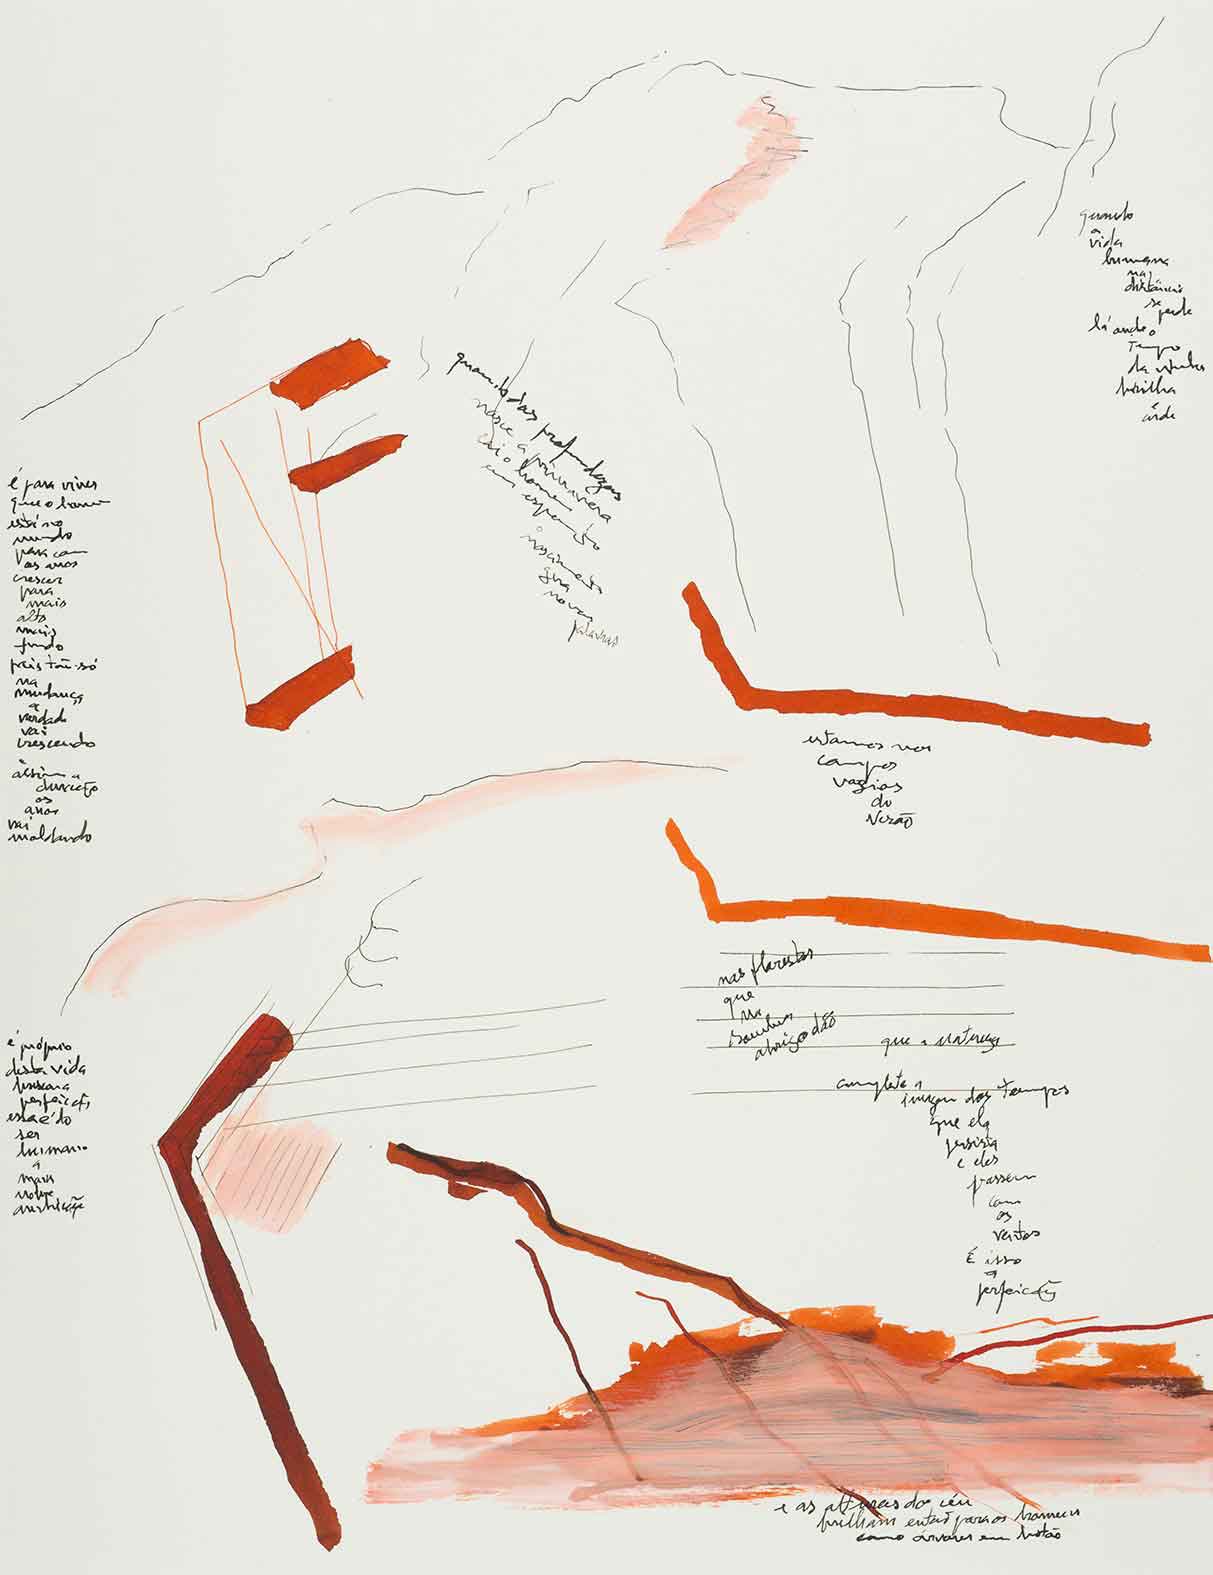 quando
a
vida
humana
na
distância
se
perde
lá onde o
Tempo
da vinha
brilha
e
arde
quando das profundezas
nasce a primavera
cai o homem
em espanto
nascimento
gera
novas
palavras
é para viver
que o homem
está no
mundo
para com
os anos
crescer
para
mais
alto
mais
fundo
pois tão-só
na
mudança
a
verdade
vai
crescendo
e
assim a
duração
os
anos
vai
moldando
estamos nos
campos
vazios
do
Verão
nas florestas
que
na
sombra
abrigo dão
que a natureza
complete a
imagem dos Tempos
que ela
persista
e eles
passem
com
os
ventos
É isso
a
perfeição
é próprio
desta vida
buscar a
perfeição
esta é do
ser
humano
a
mais
nobre
ambição
e as alturas do céu
brilham então para os homens
como árvores em botão